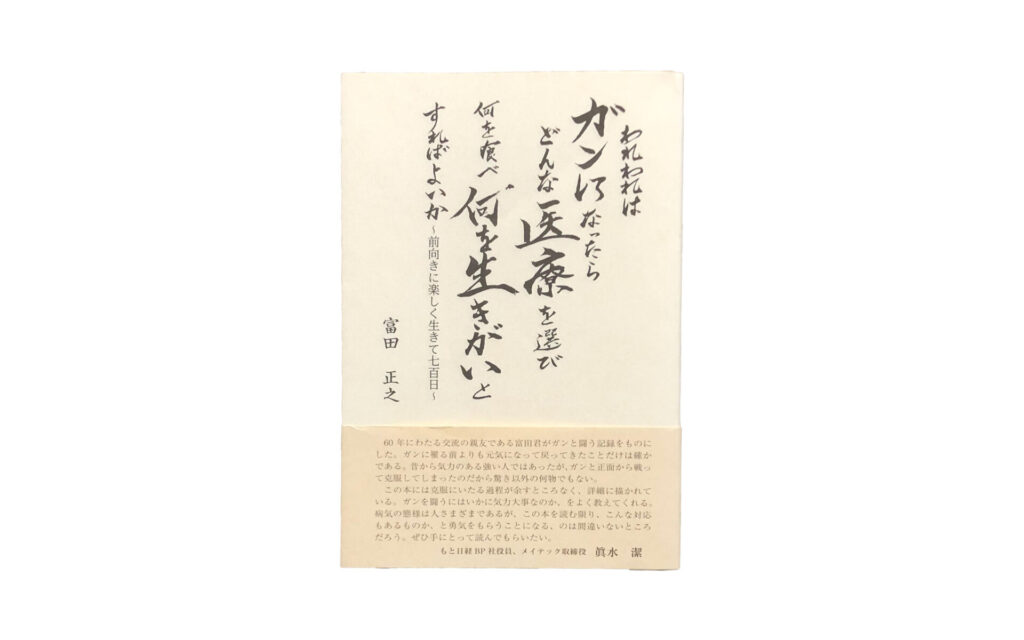 われわれは
ガンになったら
どんな医療を選び
何を食べ何を生きがいと
すればよいか～前向きに楽しく生きて七百日～
富田 正之
60年にわたる交流の親友である富田君がガンと闘う記録をものに
した。ガンに罹る前よりも元気になって戻ってきたことだけは確か
である。昔から気力のある強い人ではあったが、ガンと正面から戦っ
て克服してしまったのだから驚き以外の何物でもない。
この本には克服にいたる過程が余すところなく、詳細に描かれて
いる。ガンを闘うにはいかに気力大事なのか、をよく教えてくれる。
病気の態様は人さまざまであるが、この本を読む限り、こんな対応
もあるものか、と勇気をもらうことになる、のは間違いないところ
だろう。ぜひ手にとって読んでもらいたい。
もと日経BP社役員、メイナック取締役 眞水 潔